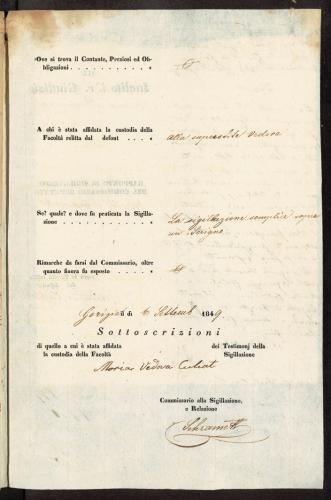 Ove si trova il Contante, Preziosi ed Ob-
bligazioni . . . . . . . . . . . .
A chi è stata affidata la custodia della
Facoltà relitta dal defont . . . .
alla superstite Vedova
Se? quale? e dove fu praticata la Sigilla-
zione . . . . . . . . . . . . . .
La sigillazione semplice sopra
un Scrigno
Rimarche da farsi dal Commissario, oltre
quanto finora fu esposto . . . .
li di 6 Settemb 1849
Sottoscrizioni
di quello a chi è stata affidata
la custodia della Facoltà
dei Testimonj della
Sigillazione
Maria Vedova
Commissario alla Sigillazione,
e Relazione